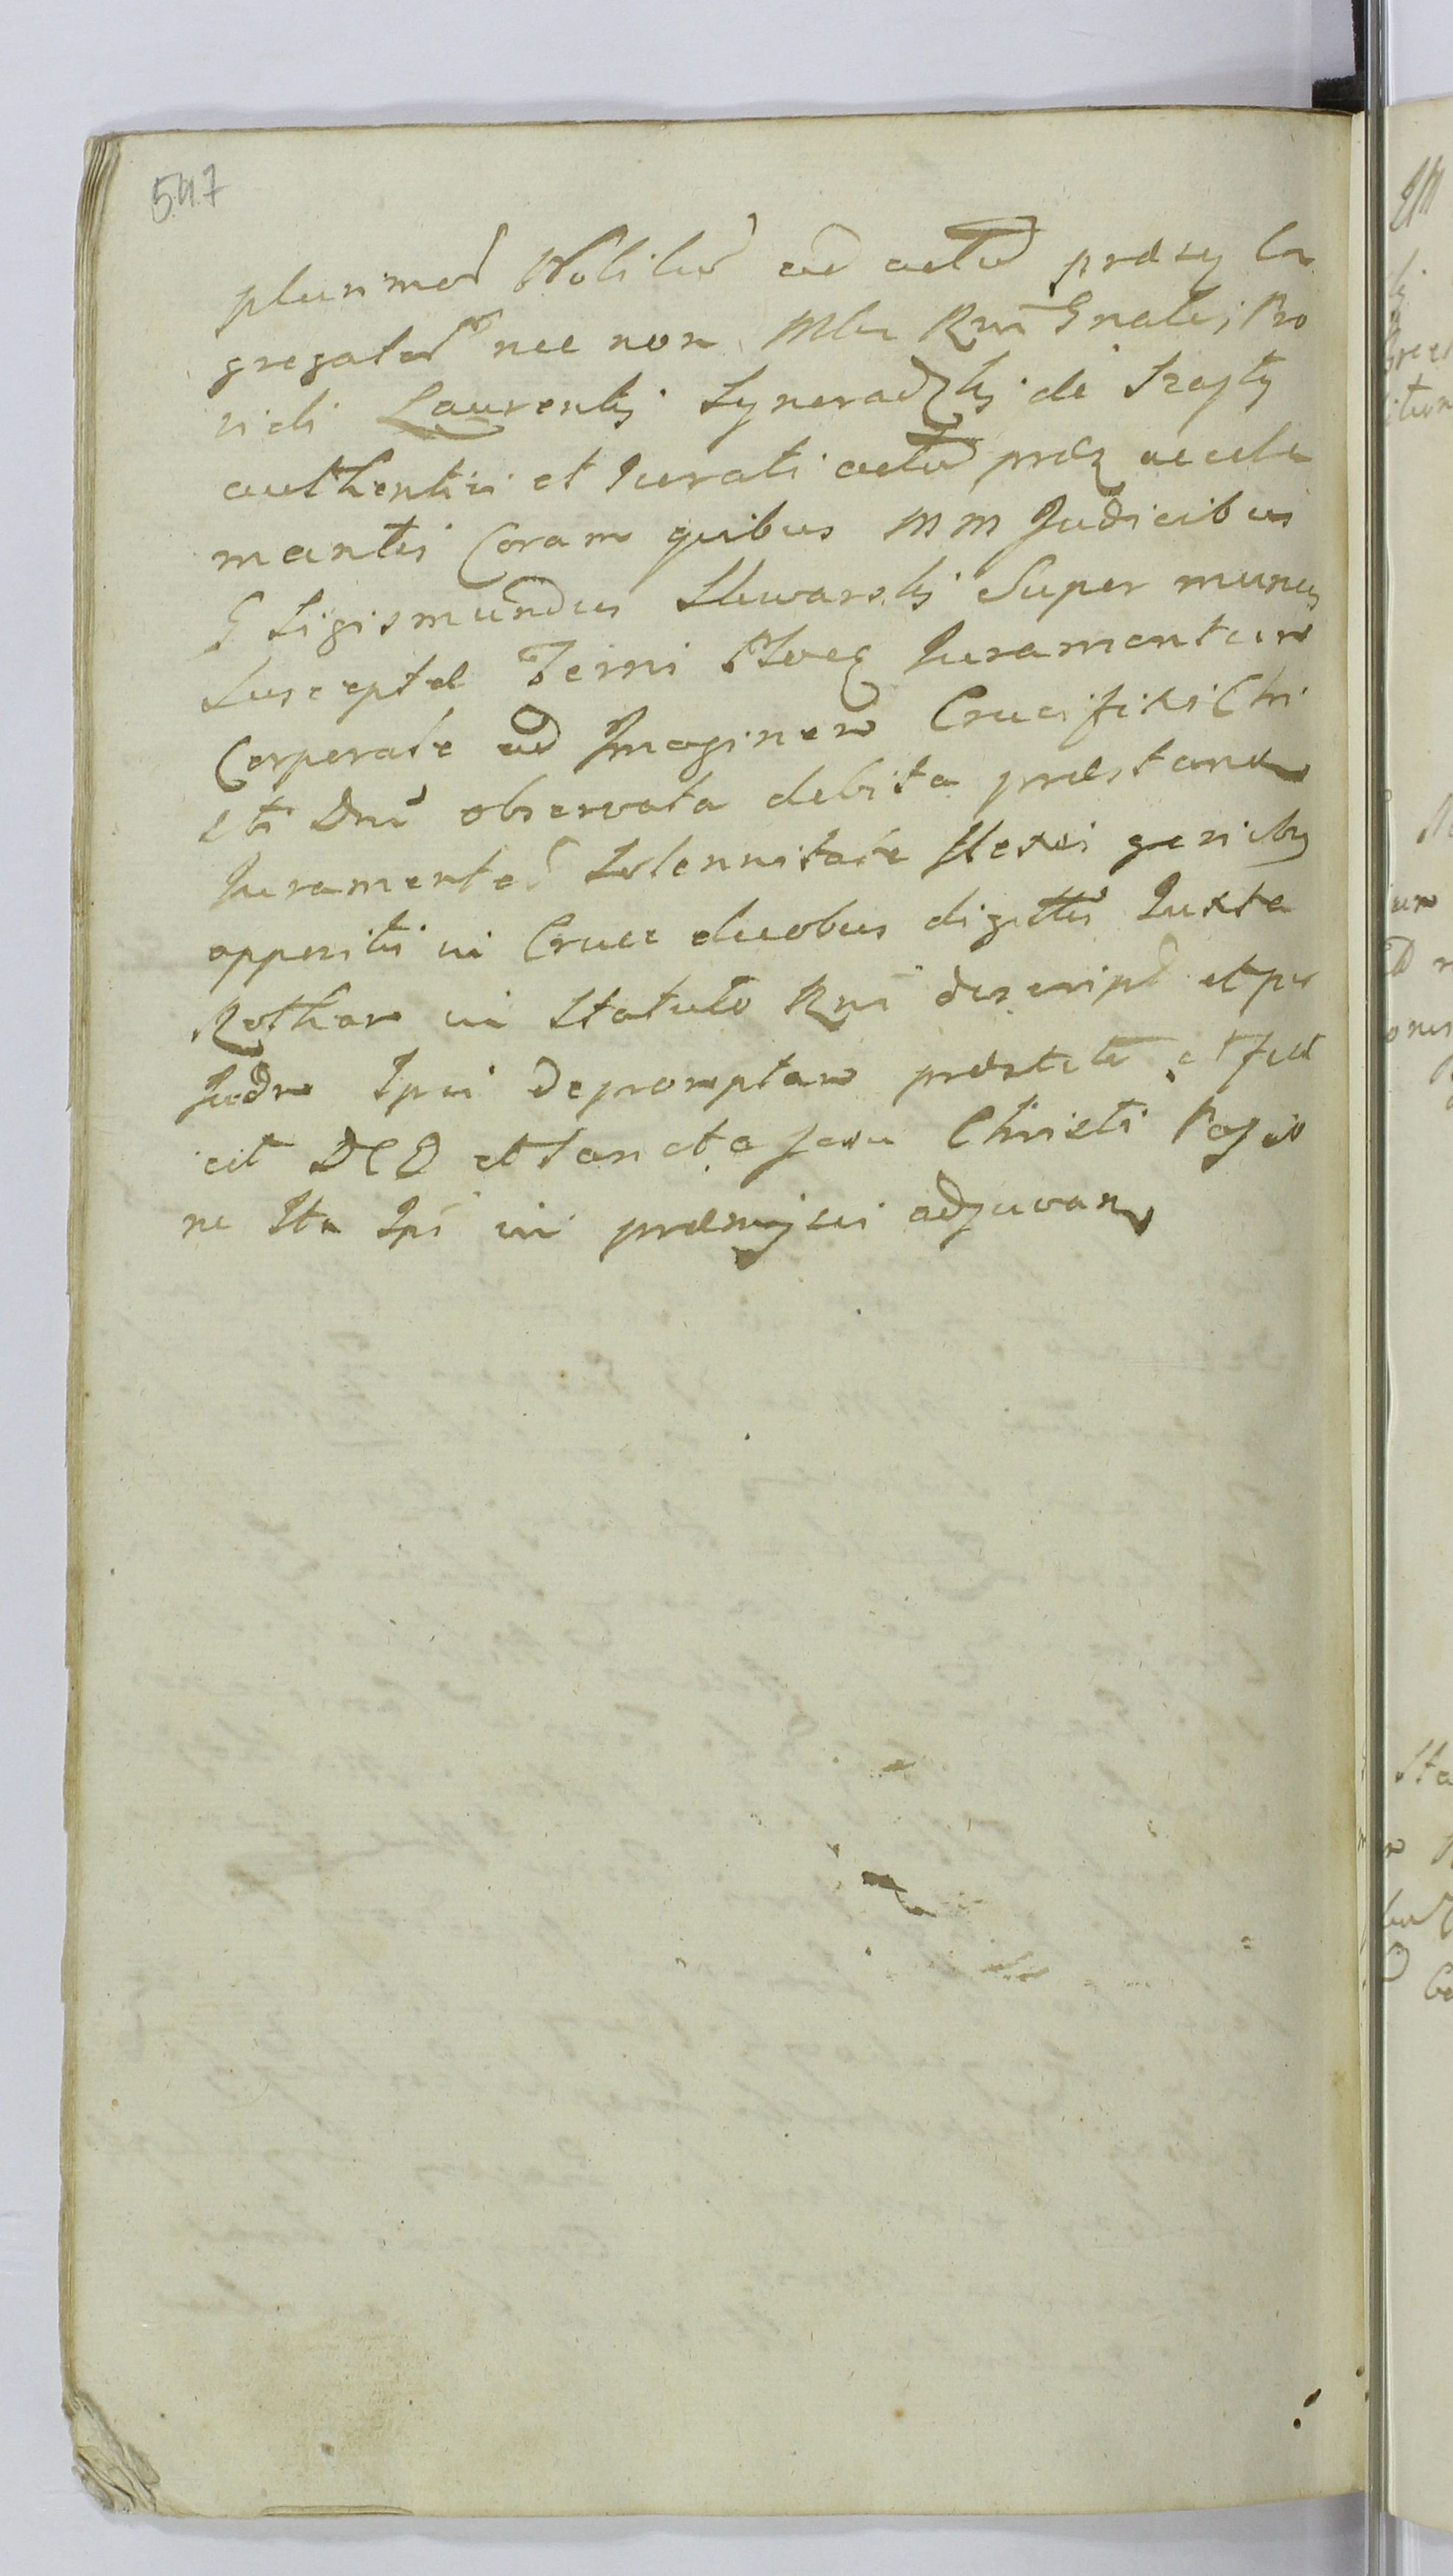 547
plurimor Nobiliu ad actu praesy Con
gregator nec non Mlu Rni Gnalis Pro
vidi Laurentij Syneradzkij de
authentici et Jurati actu praes accla
mantis Coram quibus MM Judicibus
G Sigismundus Skwarskij Super munus
Suscepta Terri Ploceq Juramentum
Corporale ad Imaginem Crucifixi Chri
sti Dni observata debita praestand
Juramentor Solennitate flexis genibus
appositis in Cruce duobus digittis Juxta
Rotham in Statuto Rni descript et per
Judm Ipsi depromptam praestitit et fec
cit DEO et Sancta Jesu Christi Passio
ne Ita Ipsi in praemijssis adjuvan